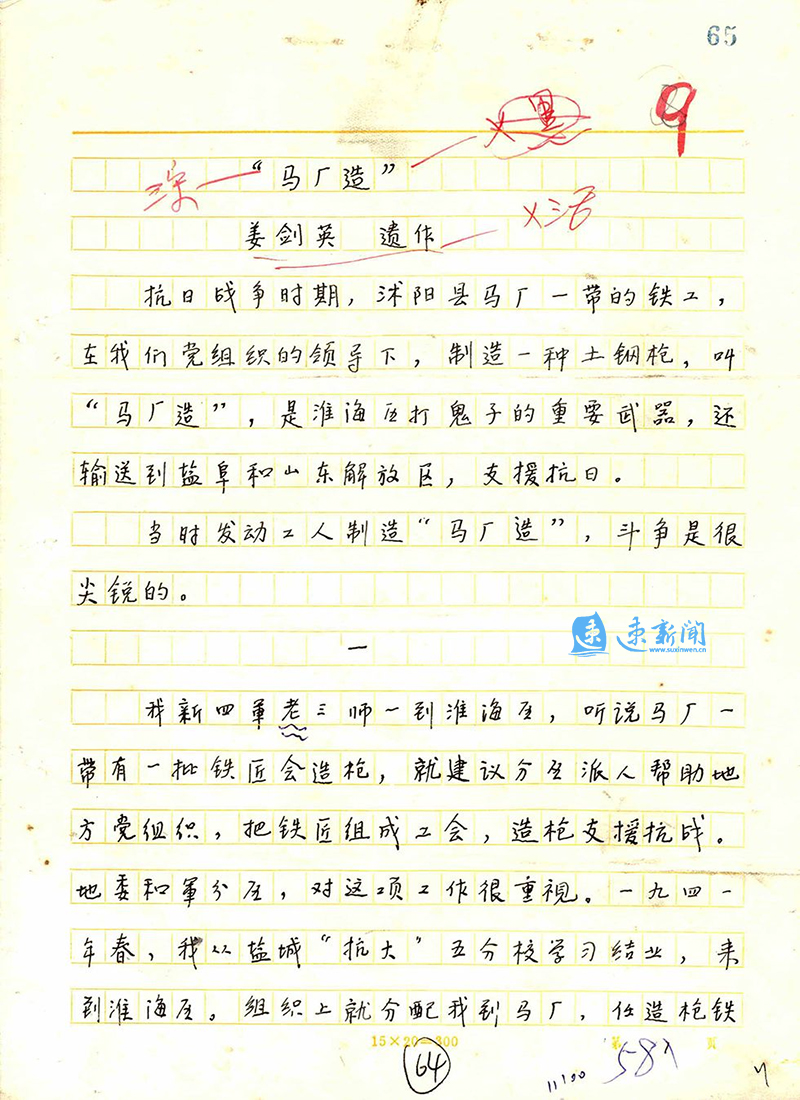 65
9
“马厂造”
姜剑英 遗作
抗日战争时期，沭阳县马厂一带的铁工，
在我们党组织的领导下，制造一种土钢枪，叫
“马厂造”，是淮海区打鬼子的重要武器，还
输送到盐阜和山东解放区，支援抗日。
当时发动工人制造“马厂造”，斗争是很
尖锐的。
速新闻
www.suxinwen.cn
一
我新四軍老三师一到淮海区，听说马厂一
带有一批铁匠会造枪，就建议分区派人帮助地
方党组织，把铁匠组成工会，造枪支援抗战。
地委和軍分区，对这项工作很重視。一九四一
年春，我从盐城“抗大”五分校学习结业，来
到淮海区。组织上就分配我到马厂，任造枪铁
15×20=300
第 页
64